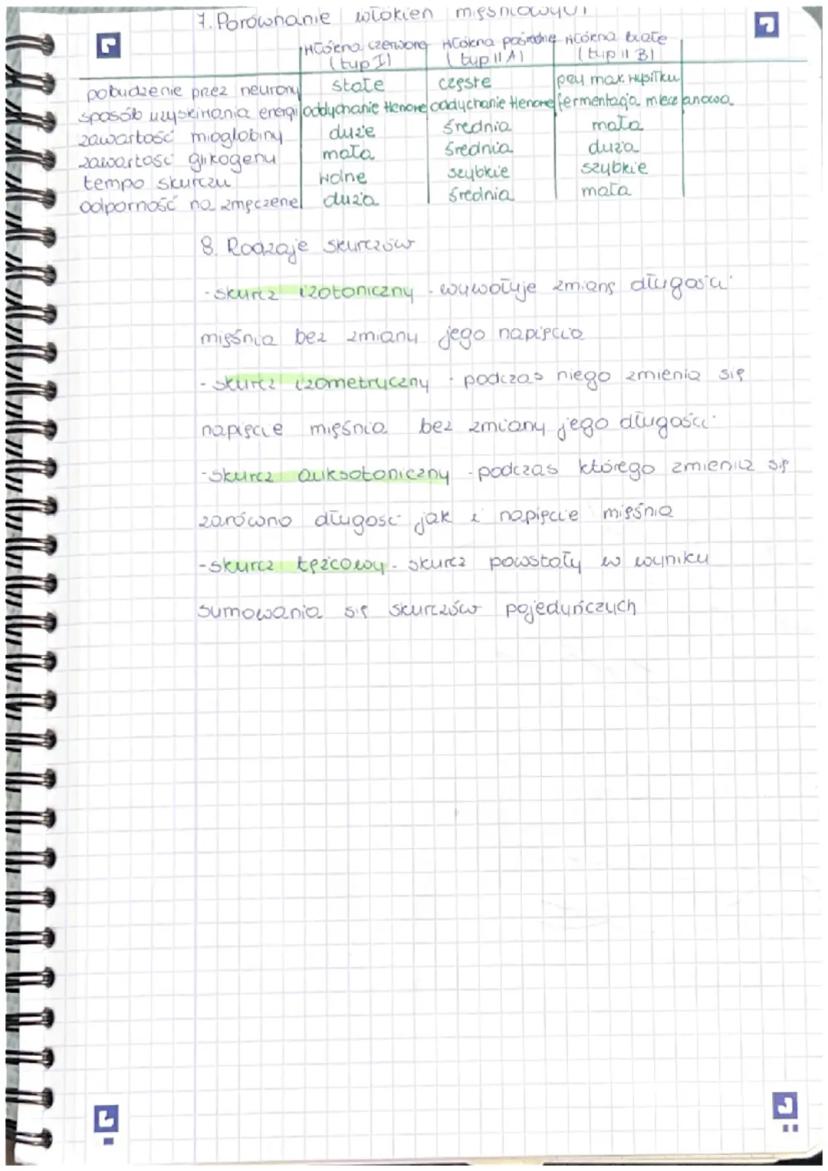 7. Porównanie włókien mięśniowych
włókna czerwone włókna pośrednie włókna białe
(typ I) (typ II A) (typ II B)
pobudzenie przez neurony stałe częste przy max. wysiłku
sposób uzyskiwania energii oddychanie tlenowe oddychanie tlenowe fermentacja mleczanowa
zawartość mioglobiny duże średnia mała
zawartość glikogenu mała średnia duża
tempo skurczu wolne szybkie szybkie
odporność na zmęczenie duża średnia mała
8. Rodzaje skurczów
- skurcz izotoniczny - wywołuje zmianę długości
mięśnia bez zmiany jego napięcia
- skurcz izometryczny - podczas niego zmienia się
napięcie mięśnia bez zmiany jego długości
- skurcz auksotoniczny - podczas którego zmienia się
zarówno długość jak i napięcie mięśnia
- skurcz tężcowy - skurcz powstały w wyniku
sumowania się skurczów pojedyńczych